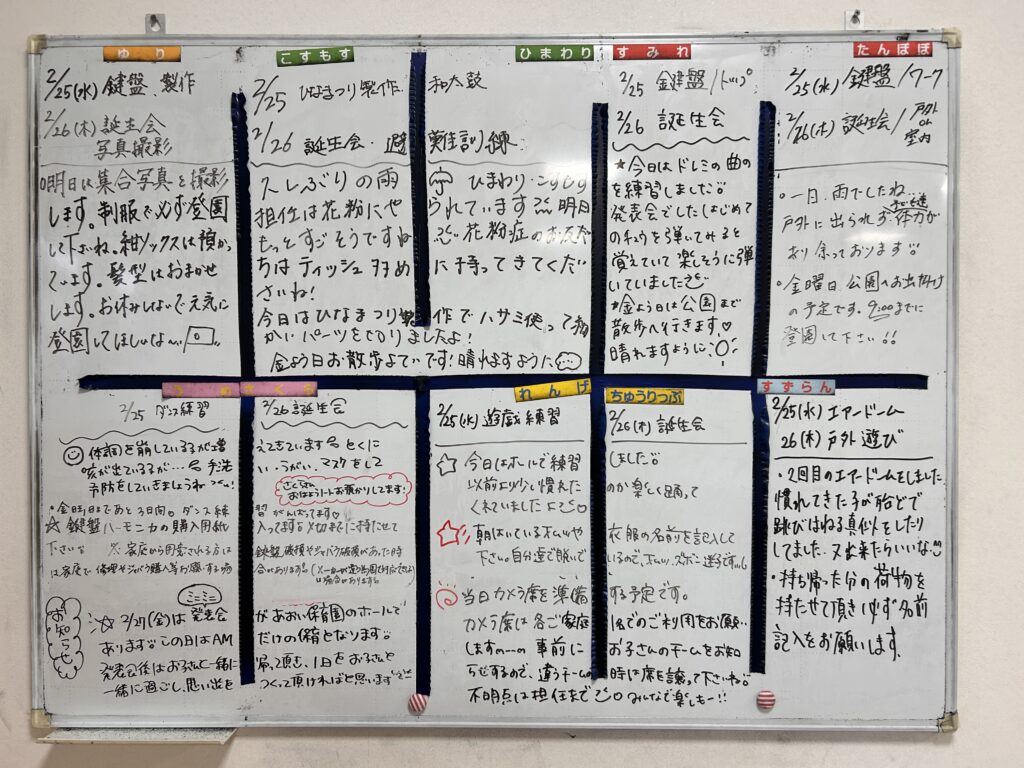 ゆり
2/25(水) 鍵盤、製作
2/26(木) 誕生会
写真撮影
明日は集合写真を撮影
します。制服で必ず登園
して下さいね。紺ソックスは預かっ
ています。髪型はおまかせ
します。お休みしないで元気に
登園してほしいな〜
こすもす
ひまわり
2/25 ひなまつり製作、和太鼓
2/26 誕生会・避難訓練
久しぶりの雨 ひまわり・こすもす
担任は花粉にやられています 明日
もっとすごそうですね 花粉症のお友だ
ちはティッシュ多めに持ってきてくだ
さいね!
今日はひなまつり製作でハサミ使って細
かいパーツを切りましたよ!
金よう日お散歩よていです!晴れますように
すみれ
2/25 鍵盤/ドッジ
2/26 誕生会
★今日はドレミの曲の
を練習しました
発表会でした はじめて
のチュウを弾いてみると
覚えていて楽しそうに弾
いていました
*金よう日は公園まで
散歩へ行きます♡
晴れますように
たんぽぽ
2/25(水) 鍵盤/ワーク
2/26(木) 誕生会/戸外or室内
○一日、雨でしたね…
戸外に出られず体力が
あり余っております
○金曜日 公園へお出掛け
の予定です。9:00までに
登園して下さい!!
さくら
2/25 ダンス練習 2/26 誕生会
体調を崩している子が増えてきています とくに
咳が出ている子が… 手洗い、うがい、マスクをして
予防をしていきましょうね
おはようノートお預かりしてます!
・金曜日まであと3日 ダンス練習がんばってます
☆鍵盤ハーモニカの購入用紙入ってます 〆切までに持たせて
下さい ※家庭から用意される方は鍵盤破損やジャバラ破損があった時
は家庭で修理やジャバラ購入等お願いする場合があります。
お知らせ
☆ 2/27(金)はミニミニ発表会があおい保育園のホールで
あります。この日はAMだけの保育となります。
発表会後はお子さんと一緒に帰って頂き、1日をお子さんと
一緒に過ごし、思い出をつくって頂ければと思います
れんげ
ちゅうりっぷ
2/25(水) 遊戯練習
2/26(木) 誕生会
☆ 今日はホールで練習しました
以前より少し慣れたのか楽しく踊って
くれていましたよ
☆ 朝はいている衣服の名前を記入して
下さい。自分達で脱いでいるので、
当日カメラ席を準備する予定です。
カメラ席は各ご家庭1名でのご利用をお願い
します 事前にお子さんのチームをお知
らせするので、違うチームの時は席を譲って下さいね
不明点は担任まで みんなで楽しもー!!
すずらん
2/25(水) エアードーム
26(木) 戸外遊び
・2回目のエアードームをしました
慣れてきた子が殆どで
跳びはねる真似をしたり
してました。又出来たらいいな
・持ち帰った分の荷物を
持たせて頂き必ず名前
記入をお願いします。